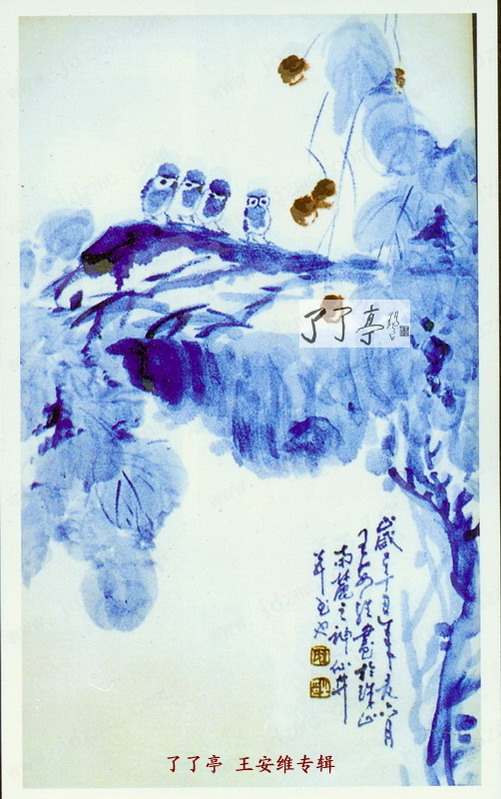 了了亭
歲 年 六月
王安維畫於珠山
南麓之神仙井
了了亭 王安维专辑